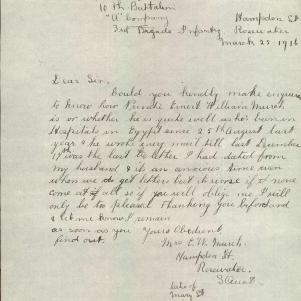 10th Battalion
"A" Company
3rd Brigade Infantry
Hampden St
Rosewater
March 23 1916
Dear Sir,
Could you kindly make enquires
to know how Private Ernest William Murch
is or whether he is quite well as he's been in
Hospitals in Egypt since 25th August last
year & he wrote every mail till last December
17th was the last letter I had dated from
my husband & it's an anxious time even
when we do get letters but its worse if none
come at all so if you will oblige me I will
only be too pleased Thanking you beforehand
& let me know I remain
as soon as you Yours Obedient,
find out. Mrs E. W. Murch.
Hampden St.
Rosewater.
S Aust.
late of
Mary St